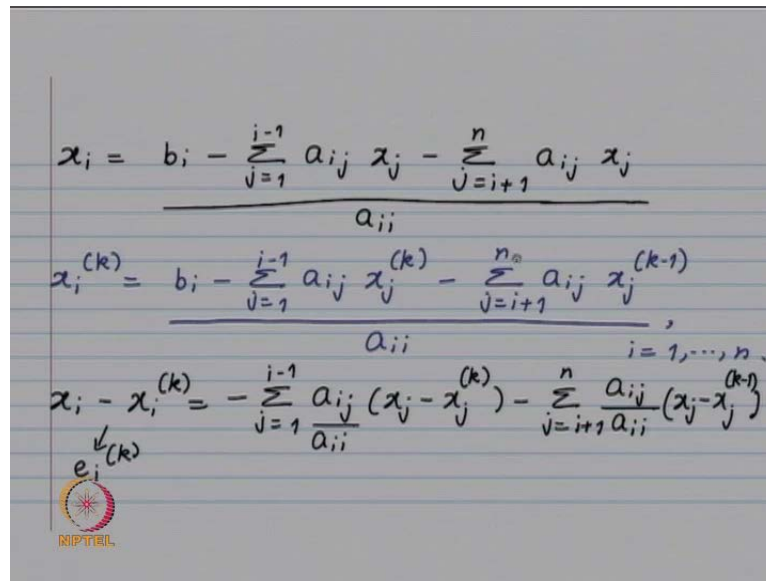 x_i = \frac{b_i - \sum_{j=1}^{i-1} a_{ij} x_j - \sum_{j=i+1}^{n} a_{ij} x_j}{a_{ii}}
x_i^{(k)} = \frac{b_i - \sum_{j=1}^{i-1} a_{ij} x_j^{(k)} - \sum_{j=i+1}^{n} a_{ij} x_j^{(k-1)}}{a_{ii}}, i = 1, \cdots, n.
x_i - x_i^{(k)} = - \sum_{j=1}^{i-1} \frac{a_{ij}}{a_{ii}} (x_j - x_j^{(k)}) - \sum_{j=i+1}^{n} \frac{a_{ij}}{a_{ii}} (x_j - x_j^{(k-1)})
↙
e_i^{(k)}
NPTEL